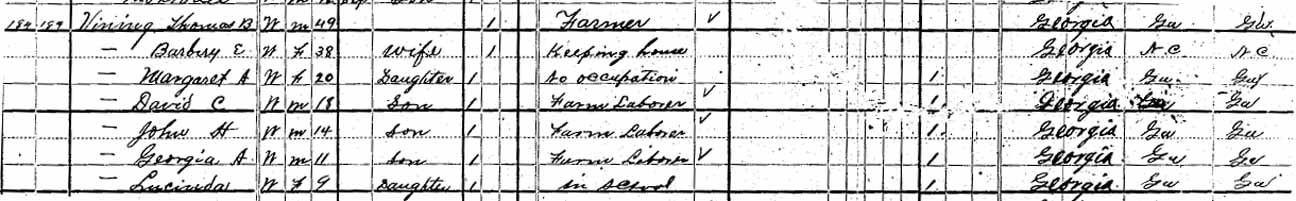 189 189 Vining Thomas B W m 49 1 Farmer Georgia Ga Ga
— Barbery E W F 38 Wife 1 Keeping house Georgia N C N C
— Margaret A W F 20 Daughter 1 no occupation 1 Georgia Ga Ga
— David C W m 18 Son 1 Farm Laborer 1 Georgia Ga Ga
— John H W m 14 Son 1 Farm Laborer 1 Georgia Ga Ga
— Georgia A W m 11 Son 1 Farm Laborer 1 Georgia Ga Ga
— Lucinda W F 9 Daughter 1 in school 1 Georgia Ga Ga